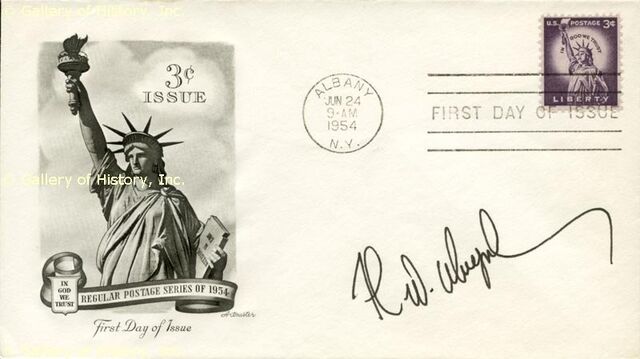 © Gallery of History, Inc.
3¢
ISSUE
ALBANY
JUN 24
9-AM
1954
N.Y.
U.S. POSTAGE 3¢
IN GOD WE TRUST
LIBERTY
FIRST DAY OF ISSUE
© Gallery of History, Inc.
IN
GOD
WE
TRUST
REGULAR POSTAGE SERIES OF 1954
Artmaster
First Day of Issue
© Gallery of History, Inc.